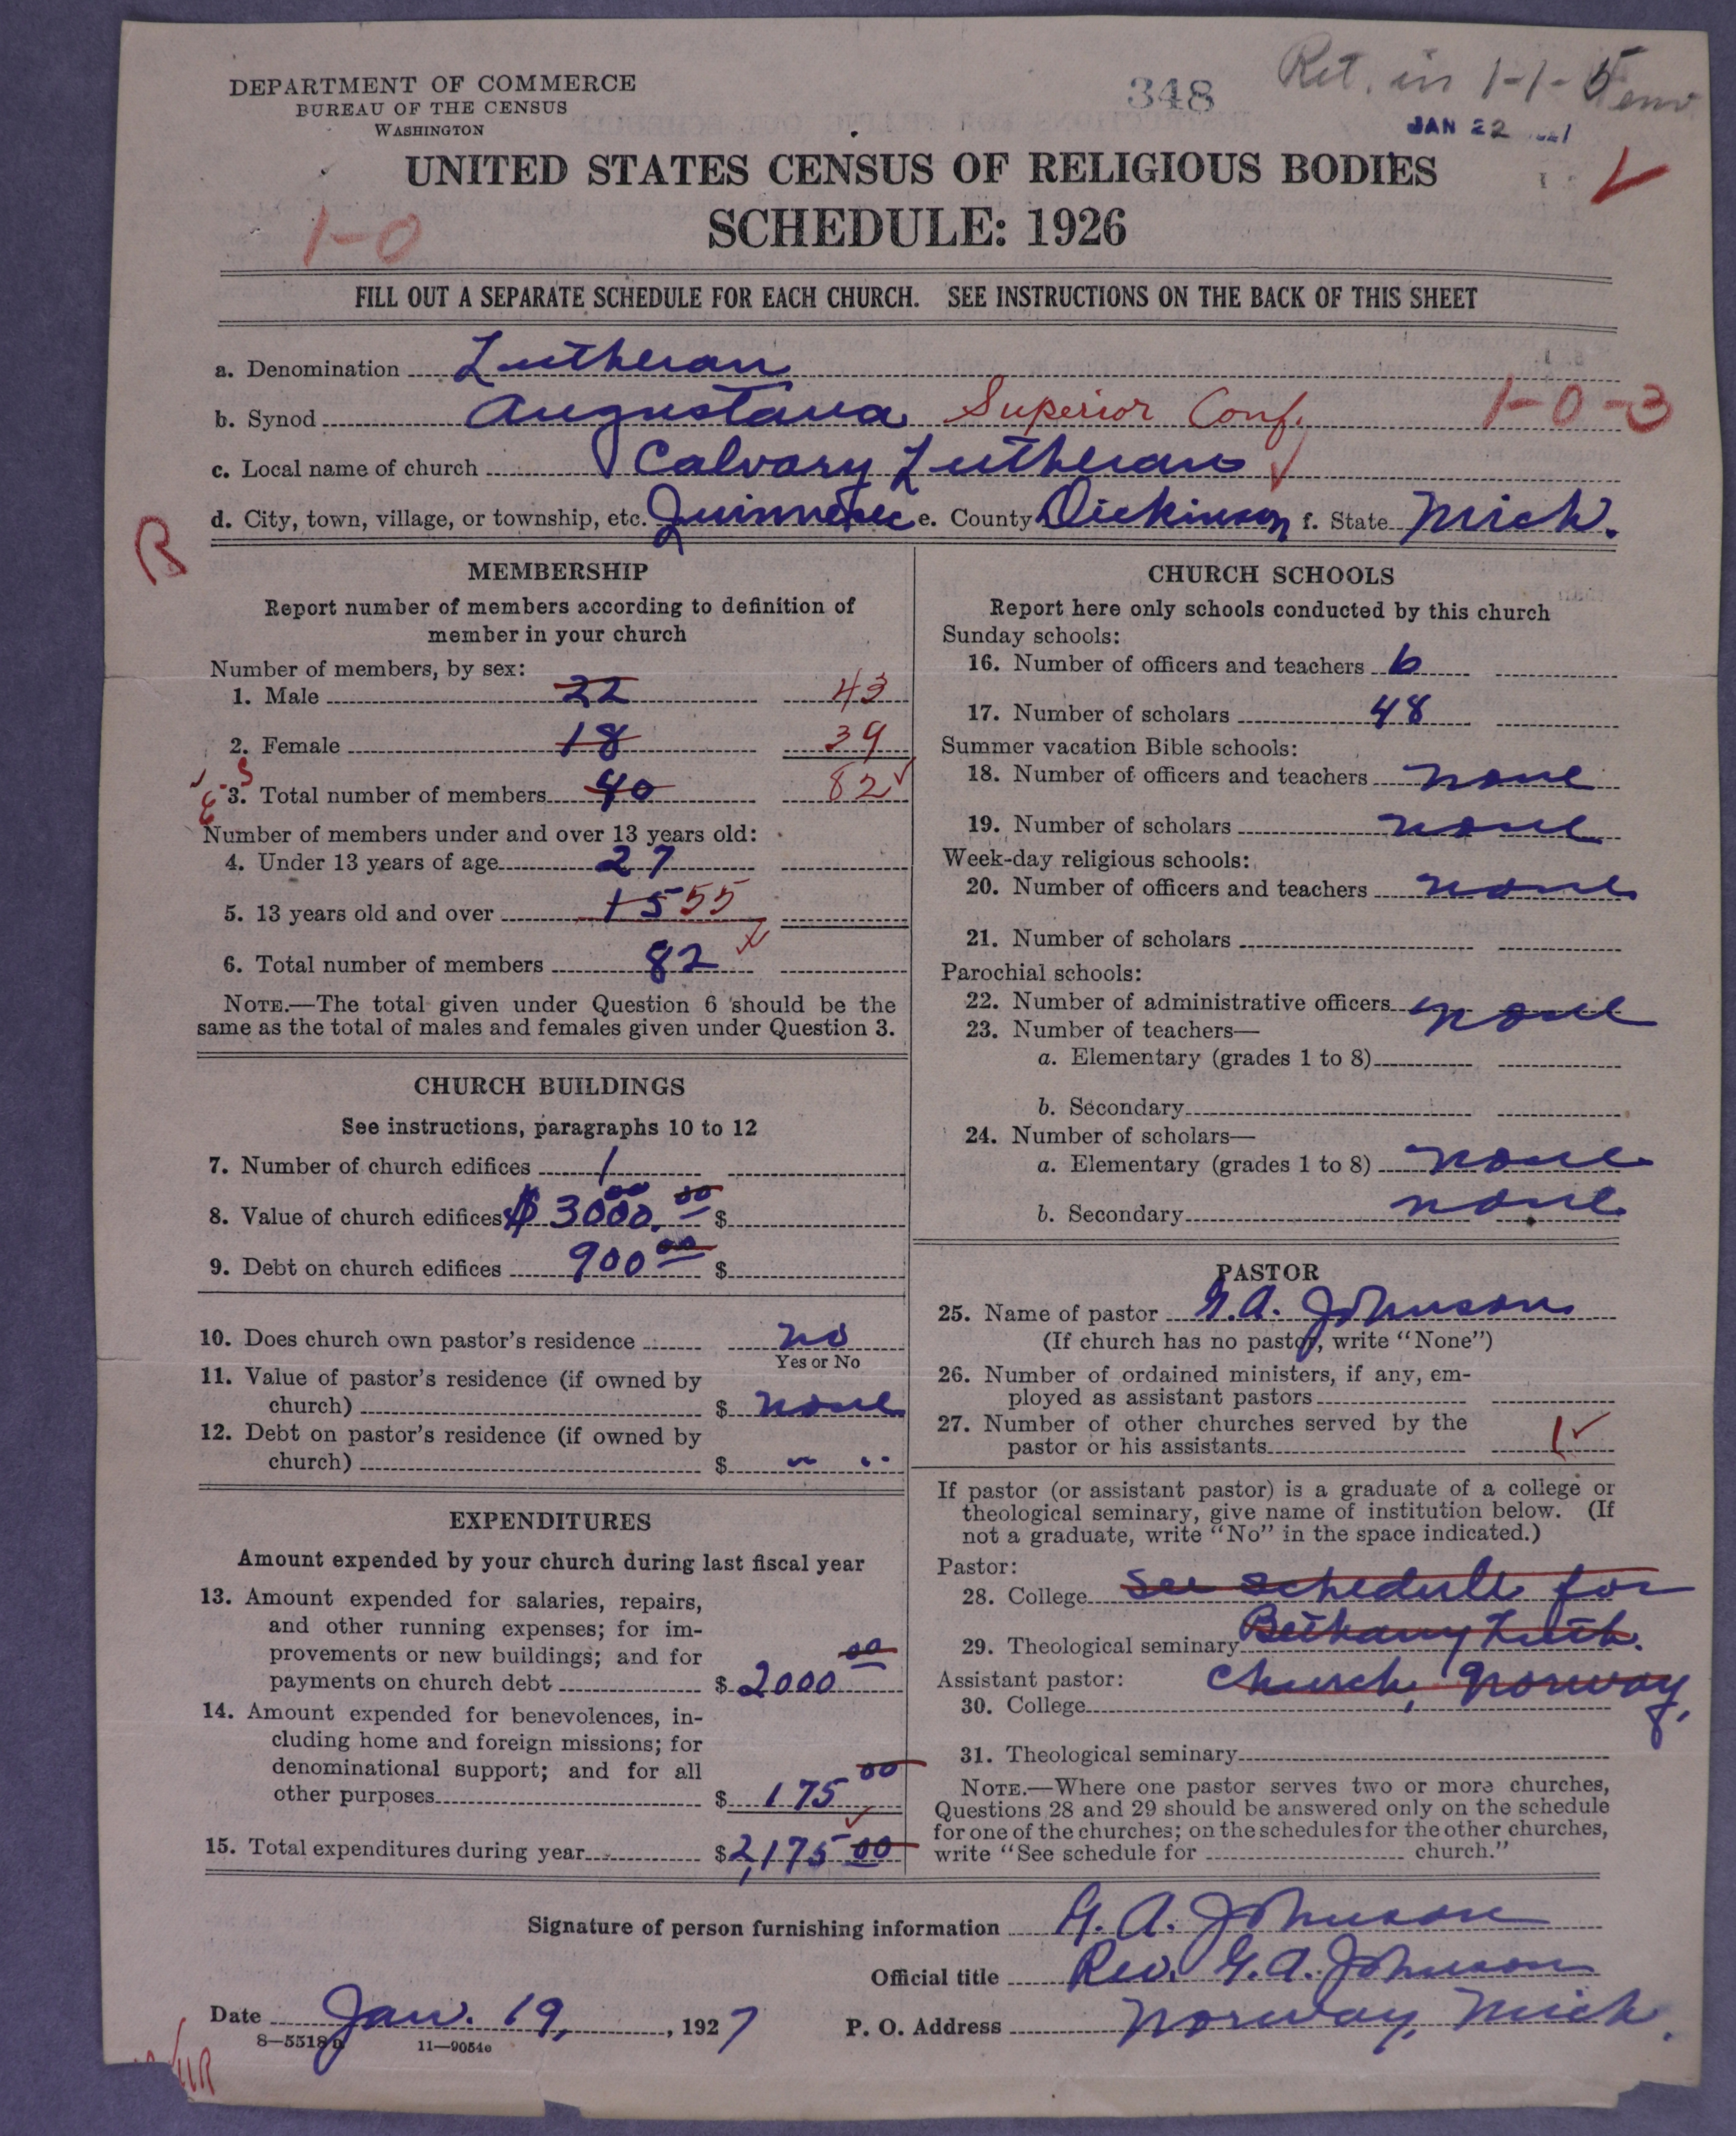 DEPARTMENT OF COMMERCE
BUREAU OF THE CENSUS
WASHINGTON
348
Ret. in 1-1-5 env
JAN 22
UNITED STATES CENSUS OF RELIGIOUS BODIES
SCHEDULE: 1926
1-0
FILL OUT A SEPARATE SCHEDULE FOR EACH CHURCH. SEE INSTRUCTIONS ON THE BACK OF THIS SHEET
a. Denomination Lutheran
b. Synod Augustana Superior Conf. 1-0-3
c. Local name of church Calvary Lutheran
d. City, town, village, or township, etc. Quinnesec e. County Dickinson f. State Mich.
R
MEMBERSHIP
Report number of members according to definition of
member in your church
Number of members, by sex:
1. Male 22 43
2. Female 18 39
3. Total number of members 40 82
Number of members under and over 13 years old:
4. Under 13 years of age 27
5. 13 years old and over 15 55
6. Total number of members 82
NOTE.—The total given under Question 6 should be the
same as the total of males and females given under Question 3.
CHURCH BUILDINGS
See instructions, paragraphs 10 to 12
7. Number of church edifices 1
8. Value of church edifices $ 3000.00 $
9. Debt on church edifices 900 00 $
10. Does church own pastor's residence no
Yes or No
11. Value of pastor's residence (if owned by
church) $ none
12. Debt on pastor's residence (if owned by
church) $ " "
EXPENDITURES
Amount expended by your church during last fiscal year
13. Amount expended for salaries, repairs,
and other running expenses; for im-
provements or new buildings; and for
payments on church debt $ 2000 00
14. Amount expended for benevolences, in-
cluding home and foreign missions; for
denominational support; and for all
other purposes $ 175 00
15. Total expenditures during year $ 2,175 00
CHURCH SCHOOLS
Report here only schools conducted by this church
Sunday schools:
16. Number of officers and teachers 6
17. Number of scholars 48
Summer vacation Bible schools:
18. Number of officers and teachers none
19. Number of scholars none
Week-day religious schools:
20. Number of officers and teachers none
21. Number of scholars
Parochial schools:
22. Number of administrative officers none
23. Number of teachers—
a. Elementary (grades 1 to 8)
b. Secondary
24. Number of scholars—
a. Elementary (grades 1 to 8) none
b. Secondary none
PASTOR
25. Name of pastor G. A. Johnson
(If church has no pastor, write "None")
26. Number of ordained ministers, if any, em-
ployed as assistant pastors
27. Number of other churches served by the
pastor or his assistants 1
If pastor (or assistant pastor) is a graduate of a college or
theological seminary, give name of institution below. (If
not a graduate, write "No" in the space indicated.)
Pastor:
28. College See schedule for
29. Theological seminary Bethany Luth.
Assistant pastor: Church, Norway,
30. College
31. Theological seminary
NOTE.—Where one pastor serves two or more churches,
Questions 28 and 29 should be answered only on the schedule
for one of the churches; on the schedules for the other churches,
write "See schedule for church."
Signature of person furnishing information G. A. Johnson
Official title Rev. G. A. Johnson
Date Jan. 19, , 1927 P. O. Address Norway, Mich.
8—5518 11—9054e